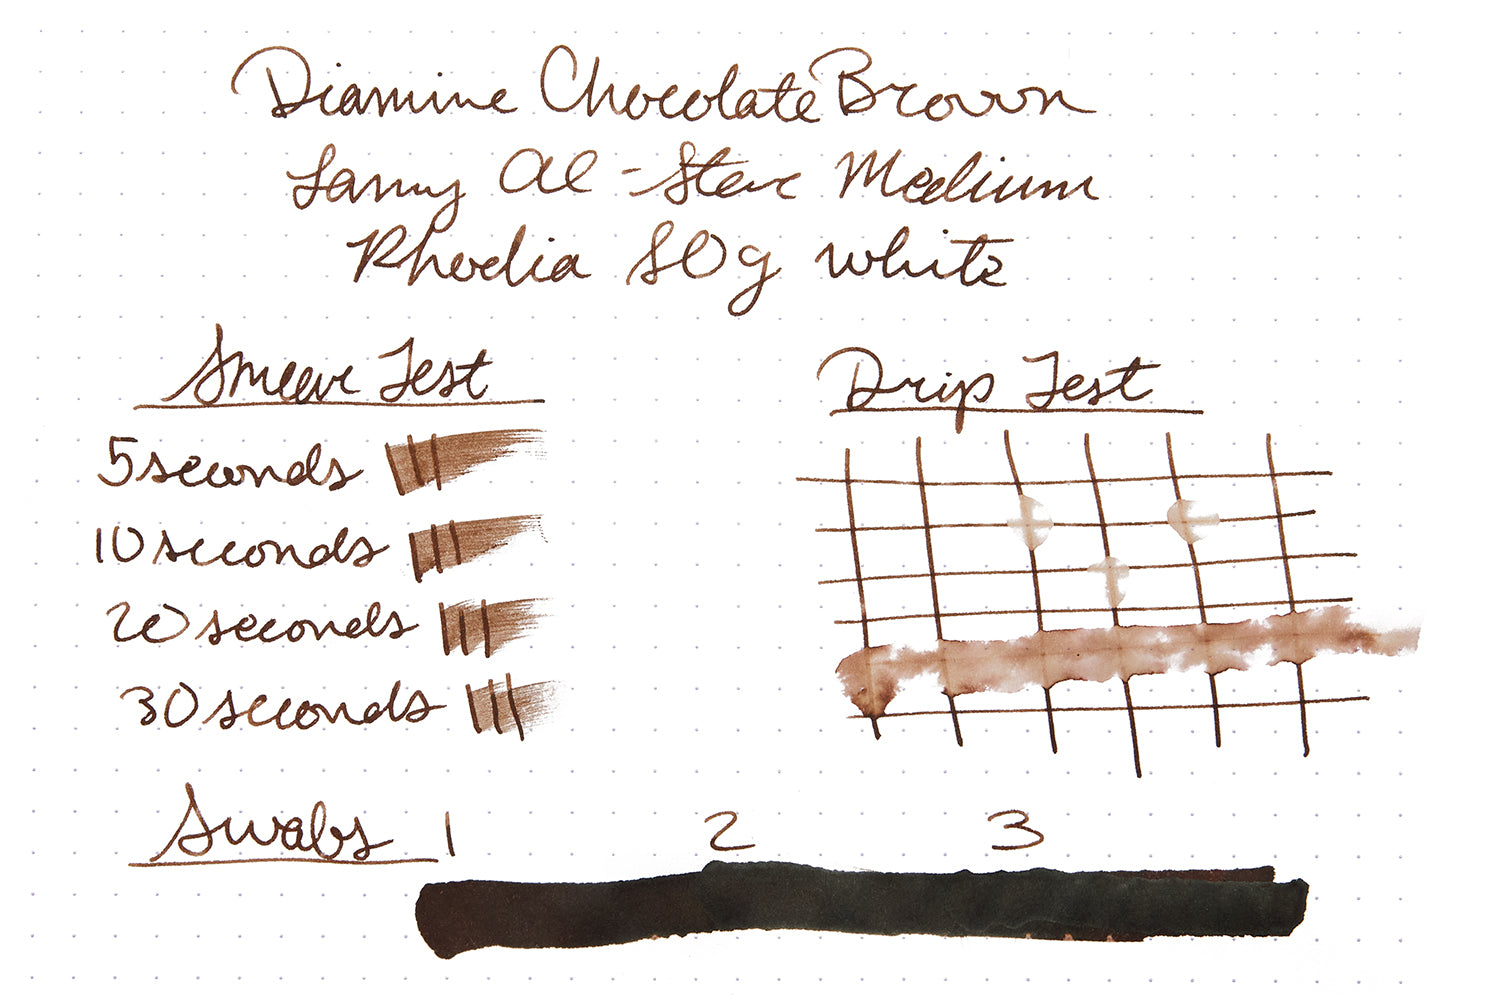 Diamine Chocolate Brown
Lamy Al-Star Medium
Rhodia 80g white
Smear Test
Drip Test
5 seconds
10 seconds
20 seconds
30 seconds
Swabs 1 2 3